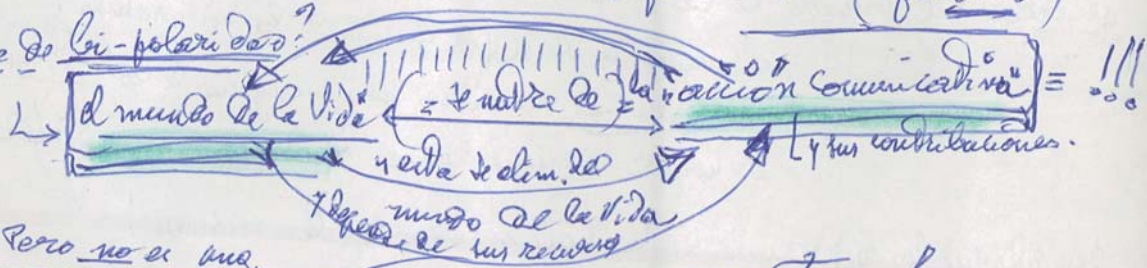 e de bi-polaridad?
el mundo de la Vida" (= se nutre de = la "acción comunicativa" = !!!
y sus contribuciones.
y esta se alim. del
mundo de la Vida
y depende de sus recursos
Pero no es una